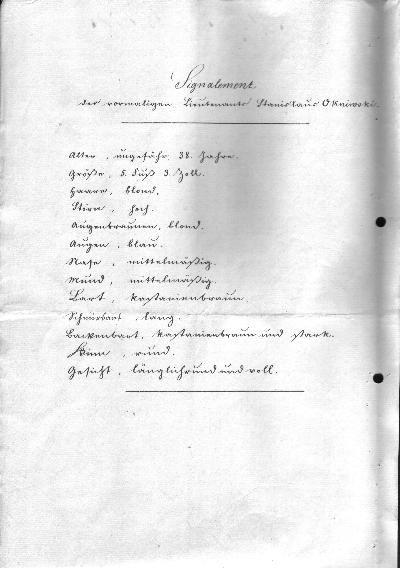 Signalement
des vormaligen Lieutenants Stanislaus Okniwski.
Alter, ungefähr 38. Jahre.
Größe, 5. Fuß 3. Zoll.
Haare, blond.
Stirn, hoch.
Augenbraunen, blond.
Augen, blau.
Nase, mittelmäßig.
Mund, mittelmäßig.
Bart, kastanienbraun
Schnurbart, lang.
Backenbart, kastanienbraun und stark.
Kinn, rund.
Gesicht, länglichrund und voll.